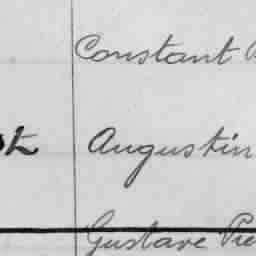 Constant
Augustin
Gustave